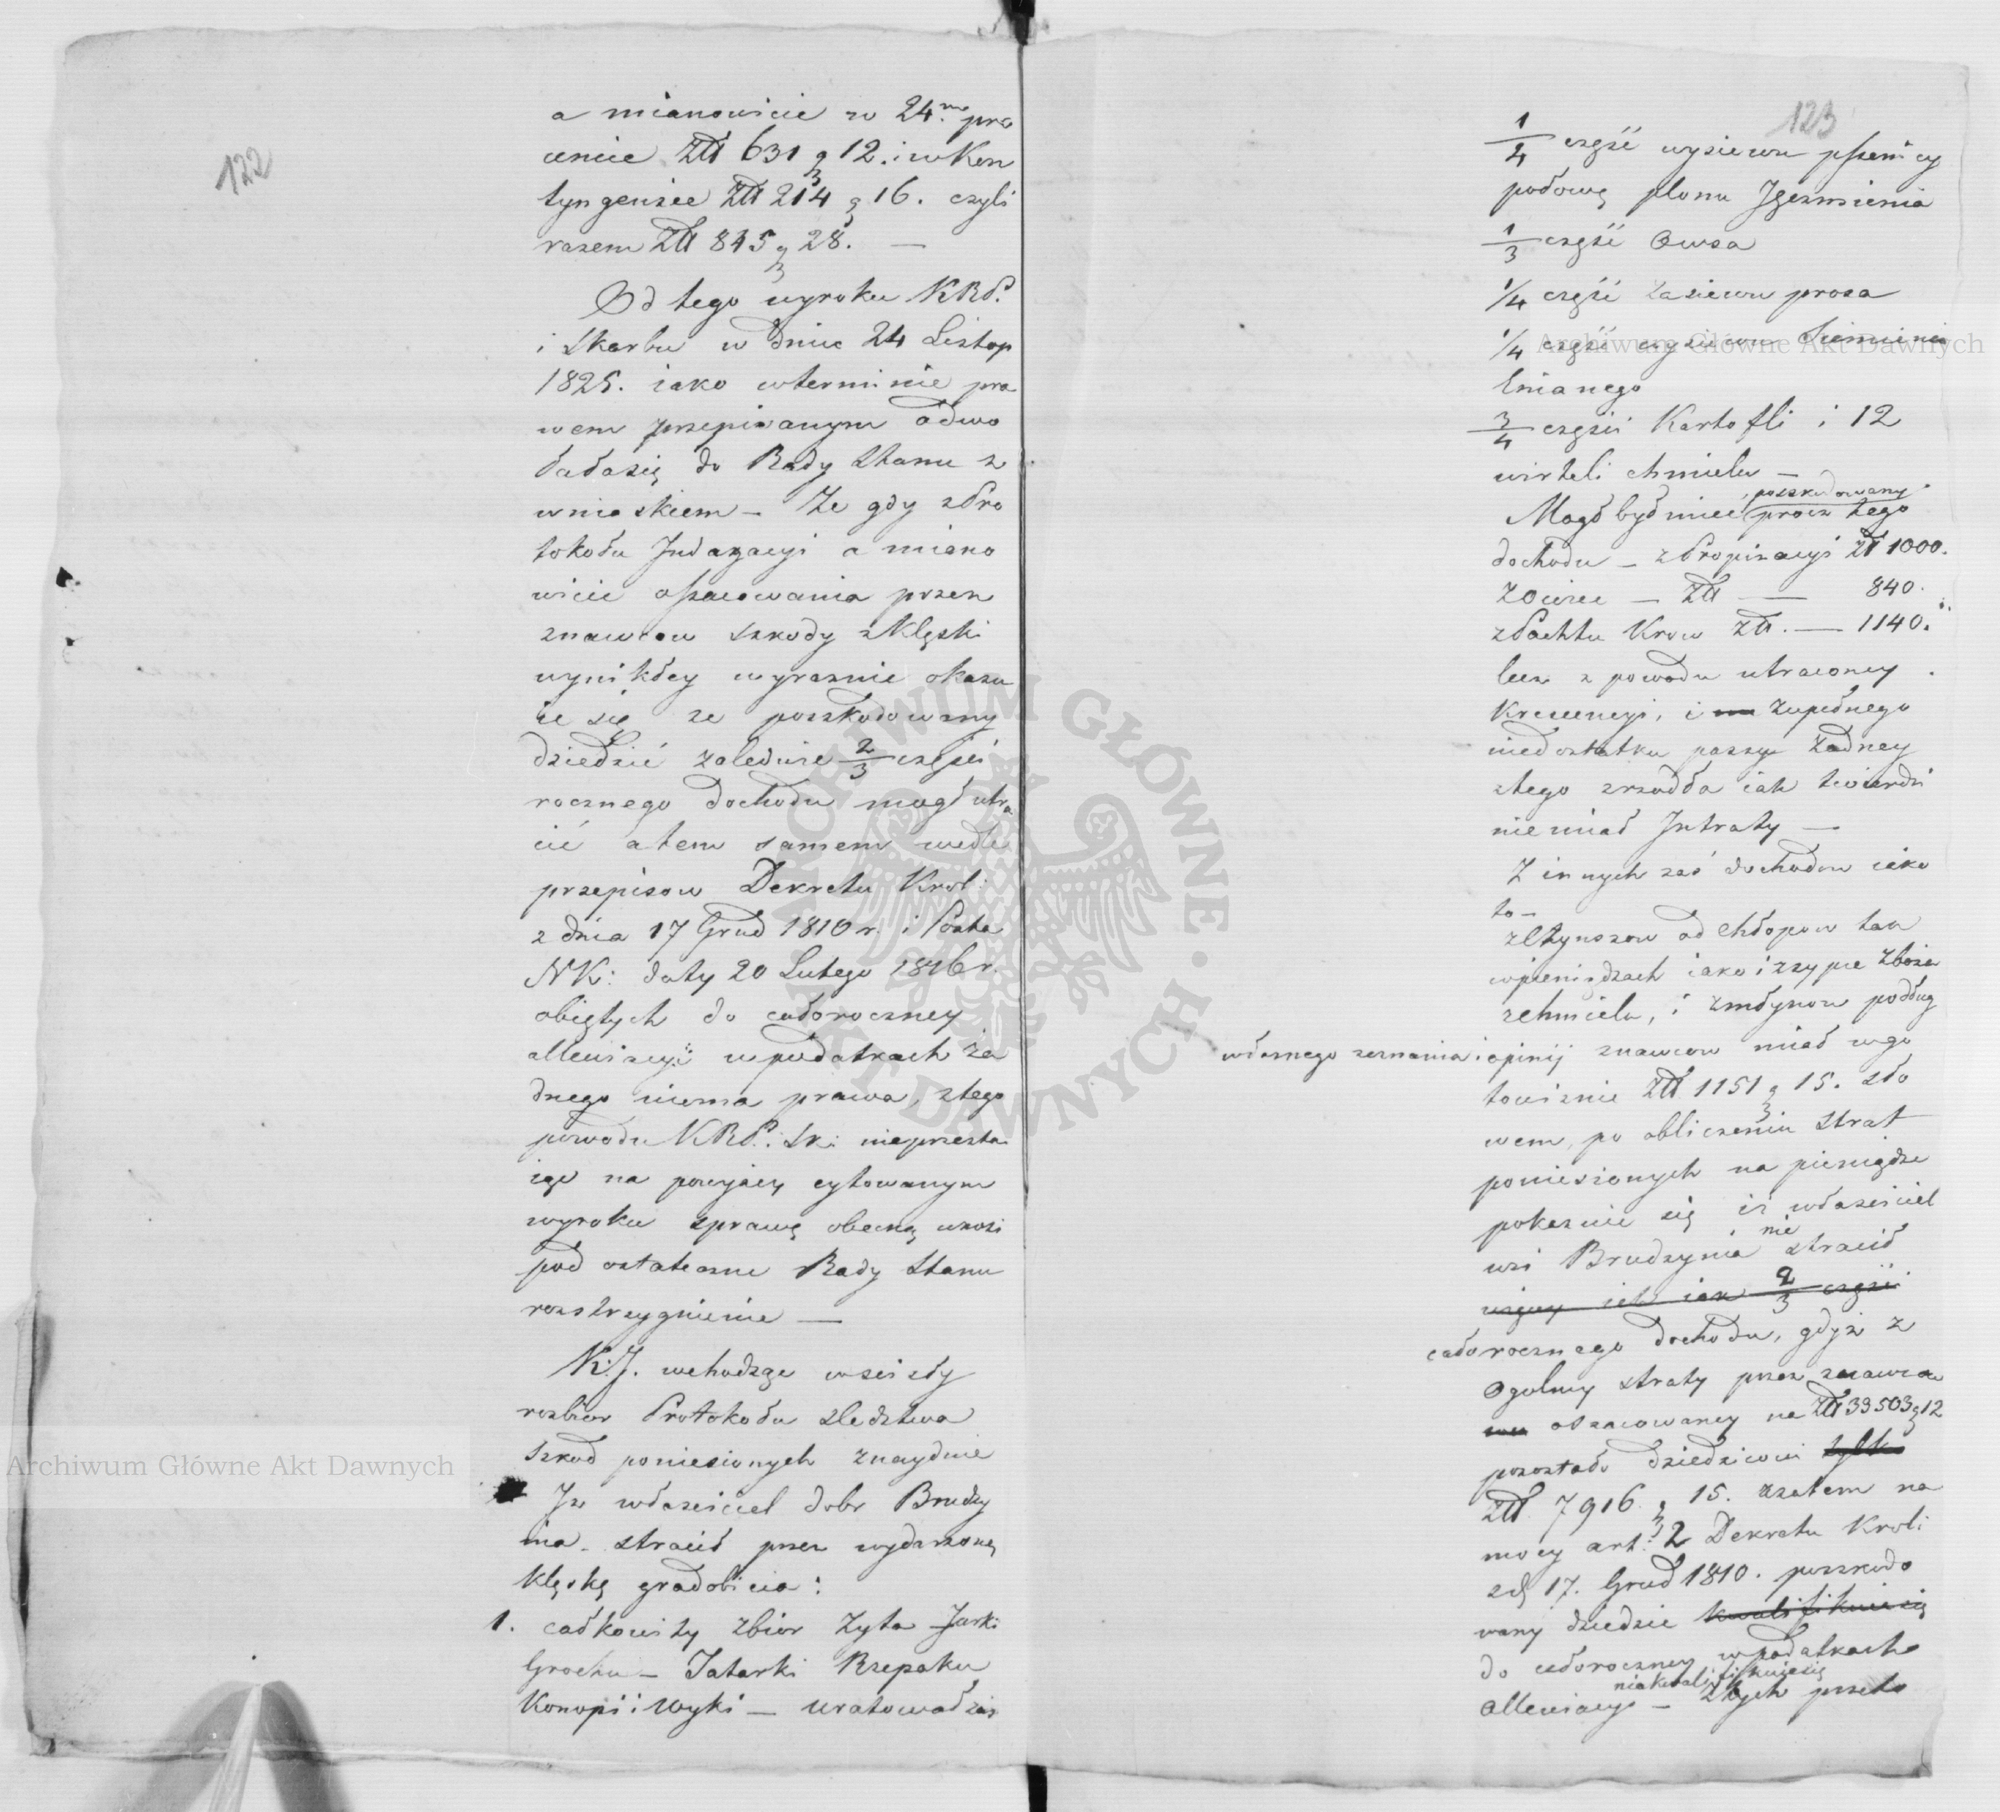 122
a mianowicie w 24.m pro
cencie Złł 631 g 12. i w Kon
tyngensie Złł 214 g 16. czyli
razem Złł 845 g 28. —
Od tego wyroku KRP.
i Skarbu w dniu 24 Listop
1825. iako w terminie pra
wem przepisanym odwo
łała się do Rady Stanu z
wnioskiem — Ze gdy z Pro
tokołu Indagacyi a miano
wicie oszacowania przez
znawcow szkody z Klęski
wynikłey wyraznie okazu
ie się ze poszkodowany
dziedzić zaledwie 2/3 części
rocznego dochodu mogł utra
cić a tem samem wedle
przepisow Dekretu Krol:
z dnia 17 Grud 1810 r. i Posta
NK: daty 20 Lutego 1816 r.
obiętych do całoroczney
allewiacyi w podatkach ża
dnego niema prawa, z tego
powodu KRP. Sk: nieprzesta
iąc na powyżey cytowanym
wyroku sprawę obecną wnosi
pod ostateczne Rady Stanu
rozstrzygnienie —
K.J. wchodząc w scisły
rozbior Protokołu sledztwa
szkod poniesionych znayduie
Iz właściciel dobr Brudzy
nia stracił przez wydarzoną
klęskę gradobicia:
1. całkowity zbior Zyta Jarki
Grochu — Tatarki Rzepaku
Konopi i Wyki — uratował zas
123
1/4 część wysiewu pszenicy
połowę plonu Jęczmienia
1/3 część Owsa
1/4 część zasiewu prosa
1/4 część wysiewu Siemienia
lnianego
3/4 części Kartofli i 12
wirteli chmielu —
poszkodowany
Mogł być mieć procz tego
dochodu — z Propinacyi Zł 1000.
z Owiec — Złł — 840.
z Pachtu Krow Złł. — 1140.
lecz z powodu utraconey
Krescencyi, i zupełnego
niedostatku paszy żadney
z tego zrzodła iak twierdzi
nie miał Intraty —
Z innych zaś dochodow iako
to —
z Czynszow od Chłopow tak
w pieniądzach iako i zsypce Zboża
z chmielu, i z młynow podług
własnego zeznania i opinij znawcow miał w go
towiznie Złł 1151 g 15. Sło
wem, po obliczeniu Strat
poniesionych na pieniądze
pokazuie się iż właściciel
wsi Brudzynia nie stracił
więcey iak 2/3 części
całorocznego dochodu, gdyż z
Ogolney straty przez znawcow
oszacowaney na Złł 33503 g 12
pozostało dziedzicowi tylko
Złł 7916 g 15. a zatem na
mocy art: 2 Dekretu Kroli
z d 17. Grud 1810. poszkodo
wany dziedzic kwalifikuie się
do całoroczney w podatkach
niekwalifikuie się
Allewiacyi — Z tych przeto
Archiwum Główne Akt Dawnych
Archiwum Główne Akt Dawnych
ARCHIWUM GŁÓWNE AKT DAWNYCH